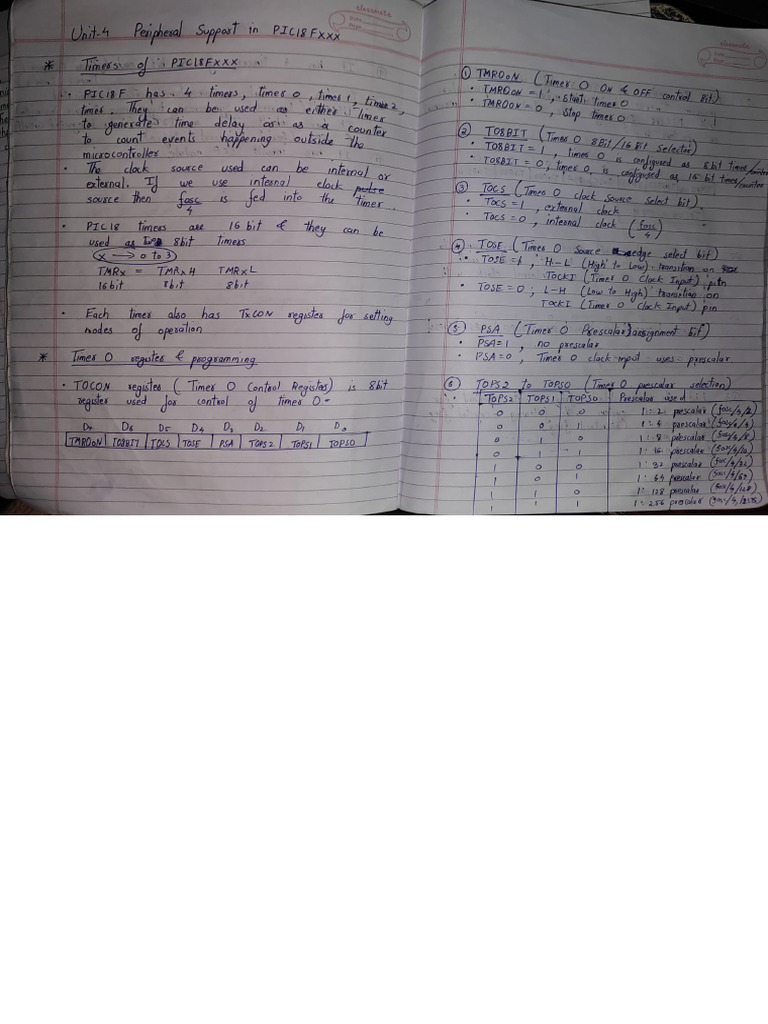 Unit-4 Peripheral Support in PIC18Fxxx
classmate
* Timers of PIC18Fxxx
• PIC18F has 4 timers, timer 0, timer 1, timer 2,
timer. They can be used as either timer
to generate time delay or as a counter
to count events happening outside the
microcontroller
• The clock source used can be internal or
external. If we use internal clock pulse
source then fosc/4 is fed into the timer
• PIC18 timers are 16 bit & they can be
used as 8bit timers
x → 0 to 3
TMRx = TMRxH TMRxL
16bit 8bit 8bit
• Each timer also has TxCON register for setting
modes of operation
* Timer 0 register & programming
• TOCON register (Timer 0 Control Register) is 8bit
register used for control of timer 0-
D7 D6 D5 D4 D3 D2 D1 D0
TMROON TO8BIT TOCS TOSE PSA TOPS2 TOPS1 TOPSO
classmate
① TMROON (Timer 0 ON & OFF control Bit)
• TMROON = 1, start timer 0
• TMROON = 0, stop timer 0
② TO8BIT (Timer 0 8Bit/16 Bit Selector)
• TO8BIT = 1, timer 0 is configured as 8bit timer/counter
• TO8BIT = 0; timer 0, is configured as 16 bit timer/counter
③ TOCS (Timer 0 clock Source Select bit)
• TOCS = 1, external clock
• TOCS = 0, internal clock (fosc/4)
④ TOSE (Timer 0 Source edge select bit)
• TOSE = 1, H-L (High to Low) transition on
TOCKI (Timer 0 Clock Input) pin
• TOSE = 0; L-H (Low to High) transition on
TOCKI (Timer 0 Clock Input) pin
⑤ PSA (Timer 0 Prescalar assignment bit)
• PSA=1, no prescalar
• PSA=0, Timer 0 clock input uses prescalar
⑥ TOPS2 to TOPSO (Timer 0 prescalar selection)
TOPS2 TOPS1 TOPSO Prescalar used
0 0 0 1:2 prescalar (fosc/4/2)
0 0 1 1:4 prescalar (fosc/4/4)
0 1 0 1:8 prescalar (fosc/4/8)
0 1 1 1:16 prescalar (fosc/4/16)
1 0 0 1:32 prescalar (fosc/4/32)
1 0 1 1:64 prescalar (fosc/4/64)
1 1 0 1:128 prescalar (fosc/4/128)
1 1 1 1:256 prescalar (fosc/4/256)